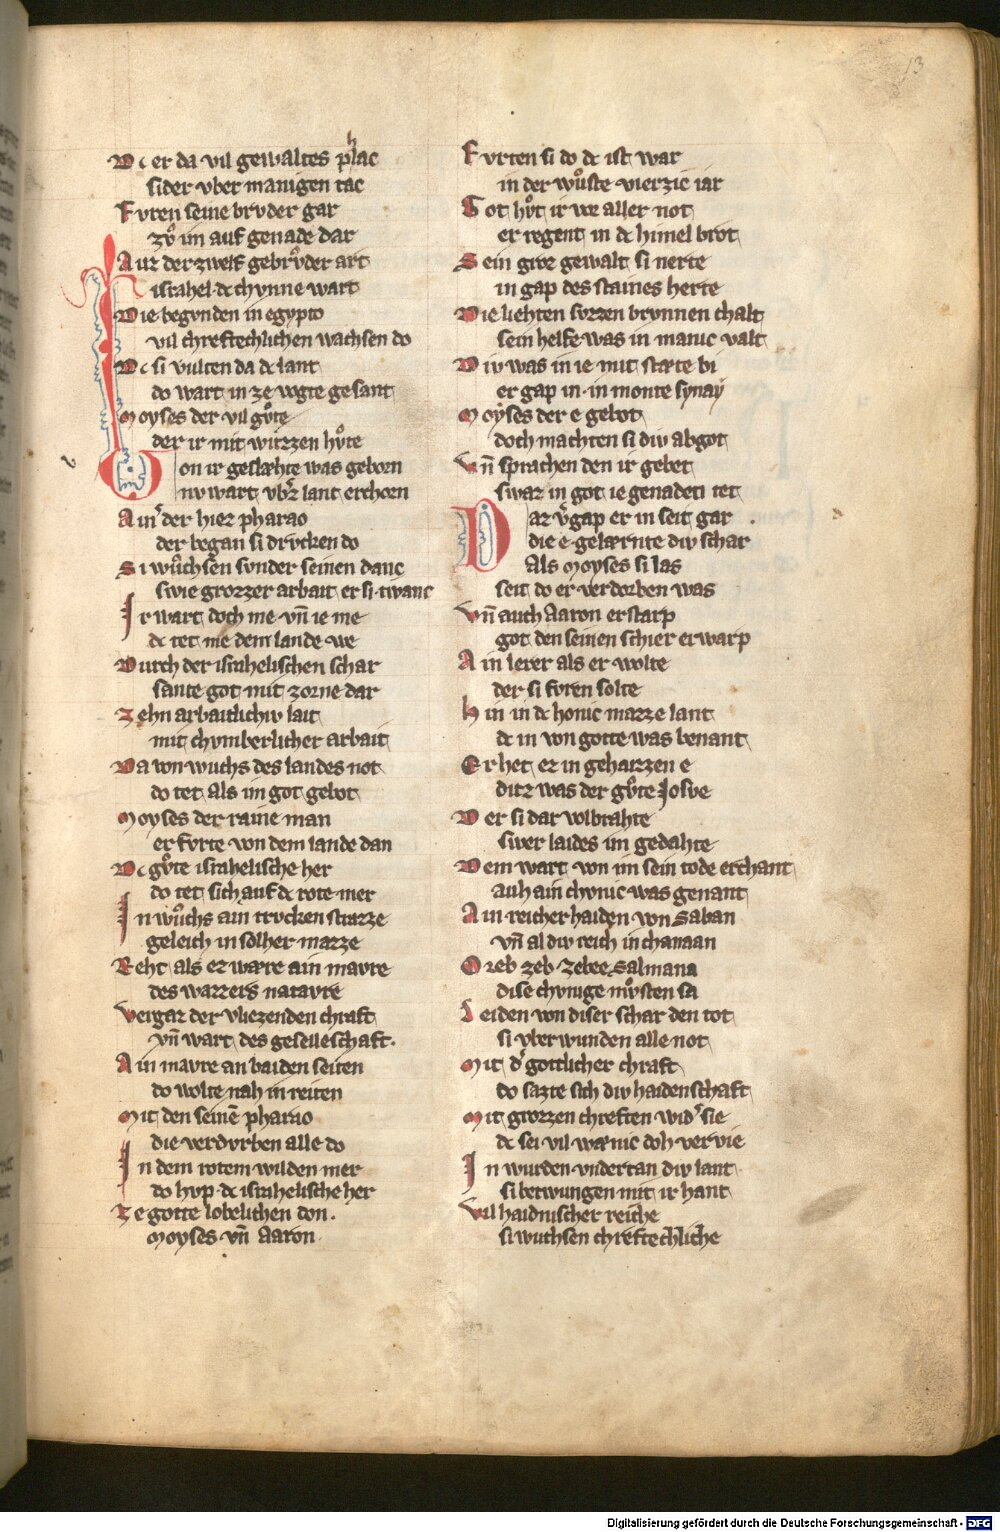 13
Dc er da vil gewaltes phlac
sider vber manigen tac
Fvren seine brvder gar
zv̊ im auf genade dar
Auz der zwelf gebrv̊der art
israhel dc chvnne wart
Die begvnden in egypto
vil chreftechlichen wachsen do
Dc si vulten da dc lant
do wart in ze vogte gesant
Moyses der vil gv̊te
der ir mit witzzen hv̊te
Von ir geslæhte was geborn
nv wart vber lant erchorn
Ain der hiez pharao
der began si drvcken do
Si wv̊chsen svnder seinen danc
swie grozzer arbait er si twanc
Ir wart doch me vn̄ ie me
dc tet me dem lande we
Durch der israhelischen schar
sante got mit zorne dar
Zehn arbaitlichiv lait
mit chvmberlicher arbait
Da von wuchs des landes not
do tet als im got gebot
Moyses der raine man
er fvrte von dem lande dan
Dc gv̊te israhelische her
do tet sich auf dc rote mer
In wv̊chs ain trvcken strazze
geleich in solher mazze
Reht als ez wære ain mavre
des wazzers natavre
Vergaz der vliezenden chraft
vn̄ wart des geselleschaft.
Ain mavre an baiden seiten
do wolte nah in reiten
Mit den seinē pharao
die verdvrben alle do
In dem rotem wilden mer
do hvp dc israhelische her
Ze gotte lobelichen don.
Moyses vn̄ Aaron
Fvrten si do dc ist war
in der wv̊ste vierzic iar
Got hv̊t ir vor aller not
er regent in dc himel brot
Sein groz gewalt si nerte
in gap des staines herte
Die liehten svzzen brvnnen chalt
sein helfe was in manic valt
Div was in ie mit stæte bi
er gap in in monte synay
Moyses der e gebot
doch machten si div abgot
Vn̄ sprachen den ir gebet
swaz in got ie genaden tet
Dar v̊gap er in seit gar
die e gelærnte div schar
Als Moyses si las
seit do er verdorben was
Vn̄ auch Aaron erstarp
got den seinen schier erwarp
Ain lerer als er wolte
der si fvren solte
Hin in dc honic mazze lant
dc in von gotte was benant
Er het ez in gehaizzen e
ditz was der gv̊te Josve
Der si dar volbrahte
swer laides im gedahte
Dem wart von im sein tode erchant
auh ain chvnic was genant
Ain reicher haiden von Saban
vn̄ al div reich in chanaan
Oreb zeb zebee Salmana
dise chvnige mv̊sten sa
Leiden von diser schar den tot
si vberwunden alle not
Mit d' gotlicher chraft
do sazte sich div haidenschaft
Mit grozzen chreften wid' sie
dc sei vil wænic doh vervie
In wurden vndertan div lant
si betwungen mit ir hant
Vil haidnischer reiche
si wuchsen chreftechliche
Digitalisierung gefördert durch die Deutsche Forschungsgemeinschaft - DFG